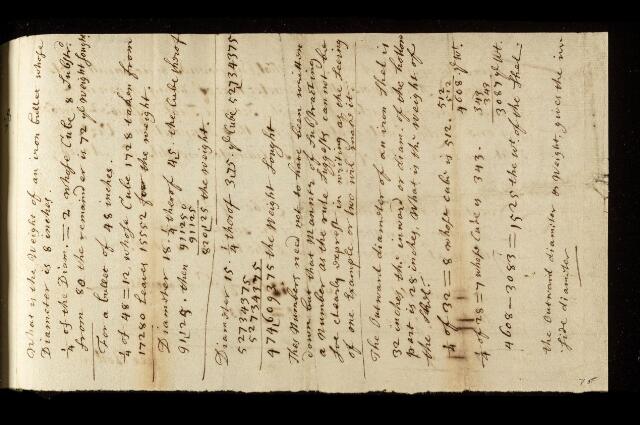 What is the Weight of an iron bullet whose
Diameter is 8 inches.
¼ of the Diam. = 2 whose Cube 8 Substr.
from 80 the remainder is 72 yͤ Weight sought
For a bullet of 48 inches.
¼ of 48 = 12, whose Cube 1728 taken from
17280 leaves 15552 for the weight.
Diameter 18. ¼ therof 4.5. the Cube therof
91125. then 911250
91125
820125 the weight.
Diameter 15. ¼ therof 3.75. yͤ Cube 52734375
52734375
52734375
474609375 the Weight sought
Thes Numbers need not to have been written
down but that Manner of Substracting
a Number as the rule suggests cannot be
so clearly exprest in writing as the seeing
of one Example or two will make it.
The Outward diameter of an iron shel is
32 inches, the inward or diam. of the hollow
part is 28 inches, What is the Weight of
the Shel.
¼ of 32 = 8 whose cube is 512. 512
512
4608 yͤ Wt.
¼ of 28 = 7 whose Cube is 343. 343
343
3087 yͤ Wt.
4608 – 3083 = 1525 the wt. of the Shel.
the Outward diameter or Weight, gives the in
side diameter
75